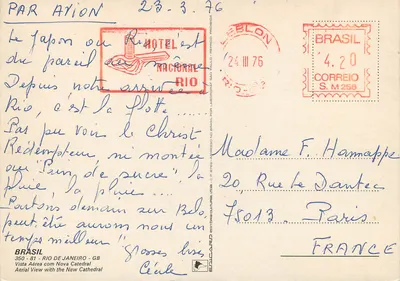 PAR AVION
23-3.76
Le Japon ou Rio, c'est
du pareil au même
Depuis notre arrivée à
Rio, c'est la flotte....
Pas pu voir le Christ
Rédempteur, ni montée
au "Pain de sucre" la
pluie, la pluie....
Partons demain sur Belo,
peut être aurons nous un
temps meilleur grosses bises
Cécile
HOTEL
NACIONAL
RIO
LEBLON
24 III 76
BRASIL
4.20
CORREIO
S.M 258
Madame F. Hannappe
20, Rue le Dantec
75013. Paris
FRANCE
BRASIL
350 - 81 - RIO DE JANEIRO - GB
Vista Aérea com Nova Catedral
Aerial View with the New Cathedral